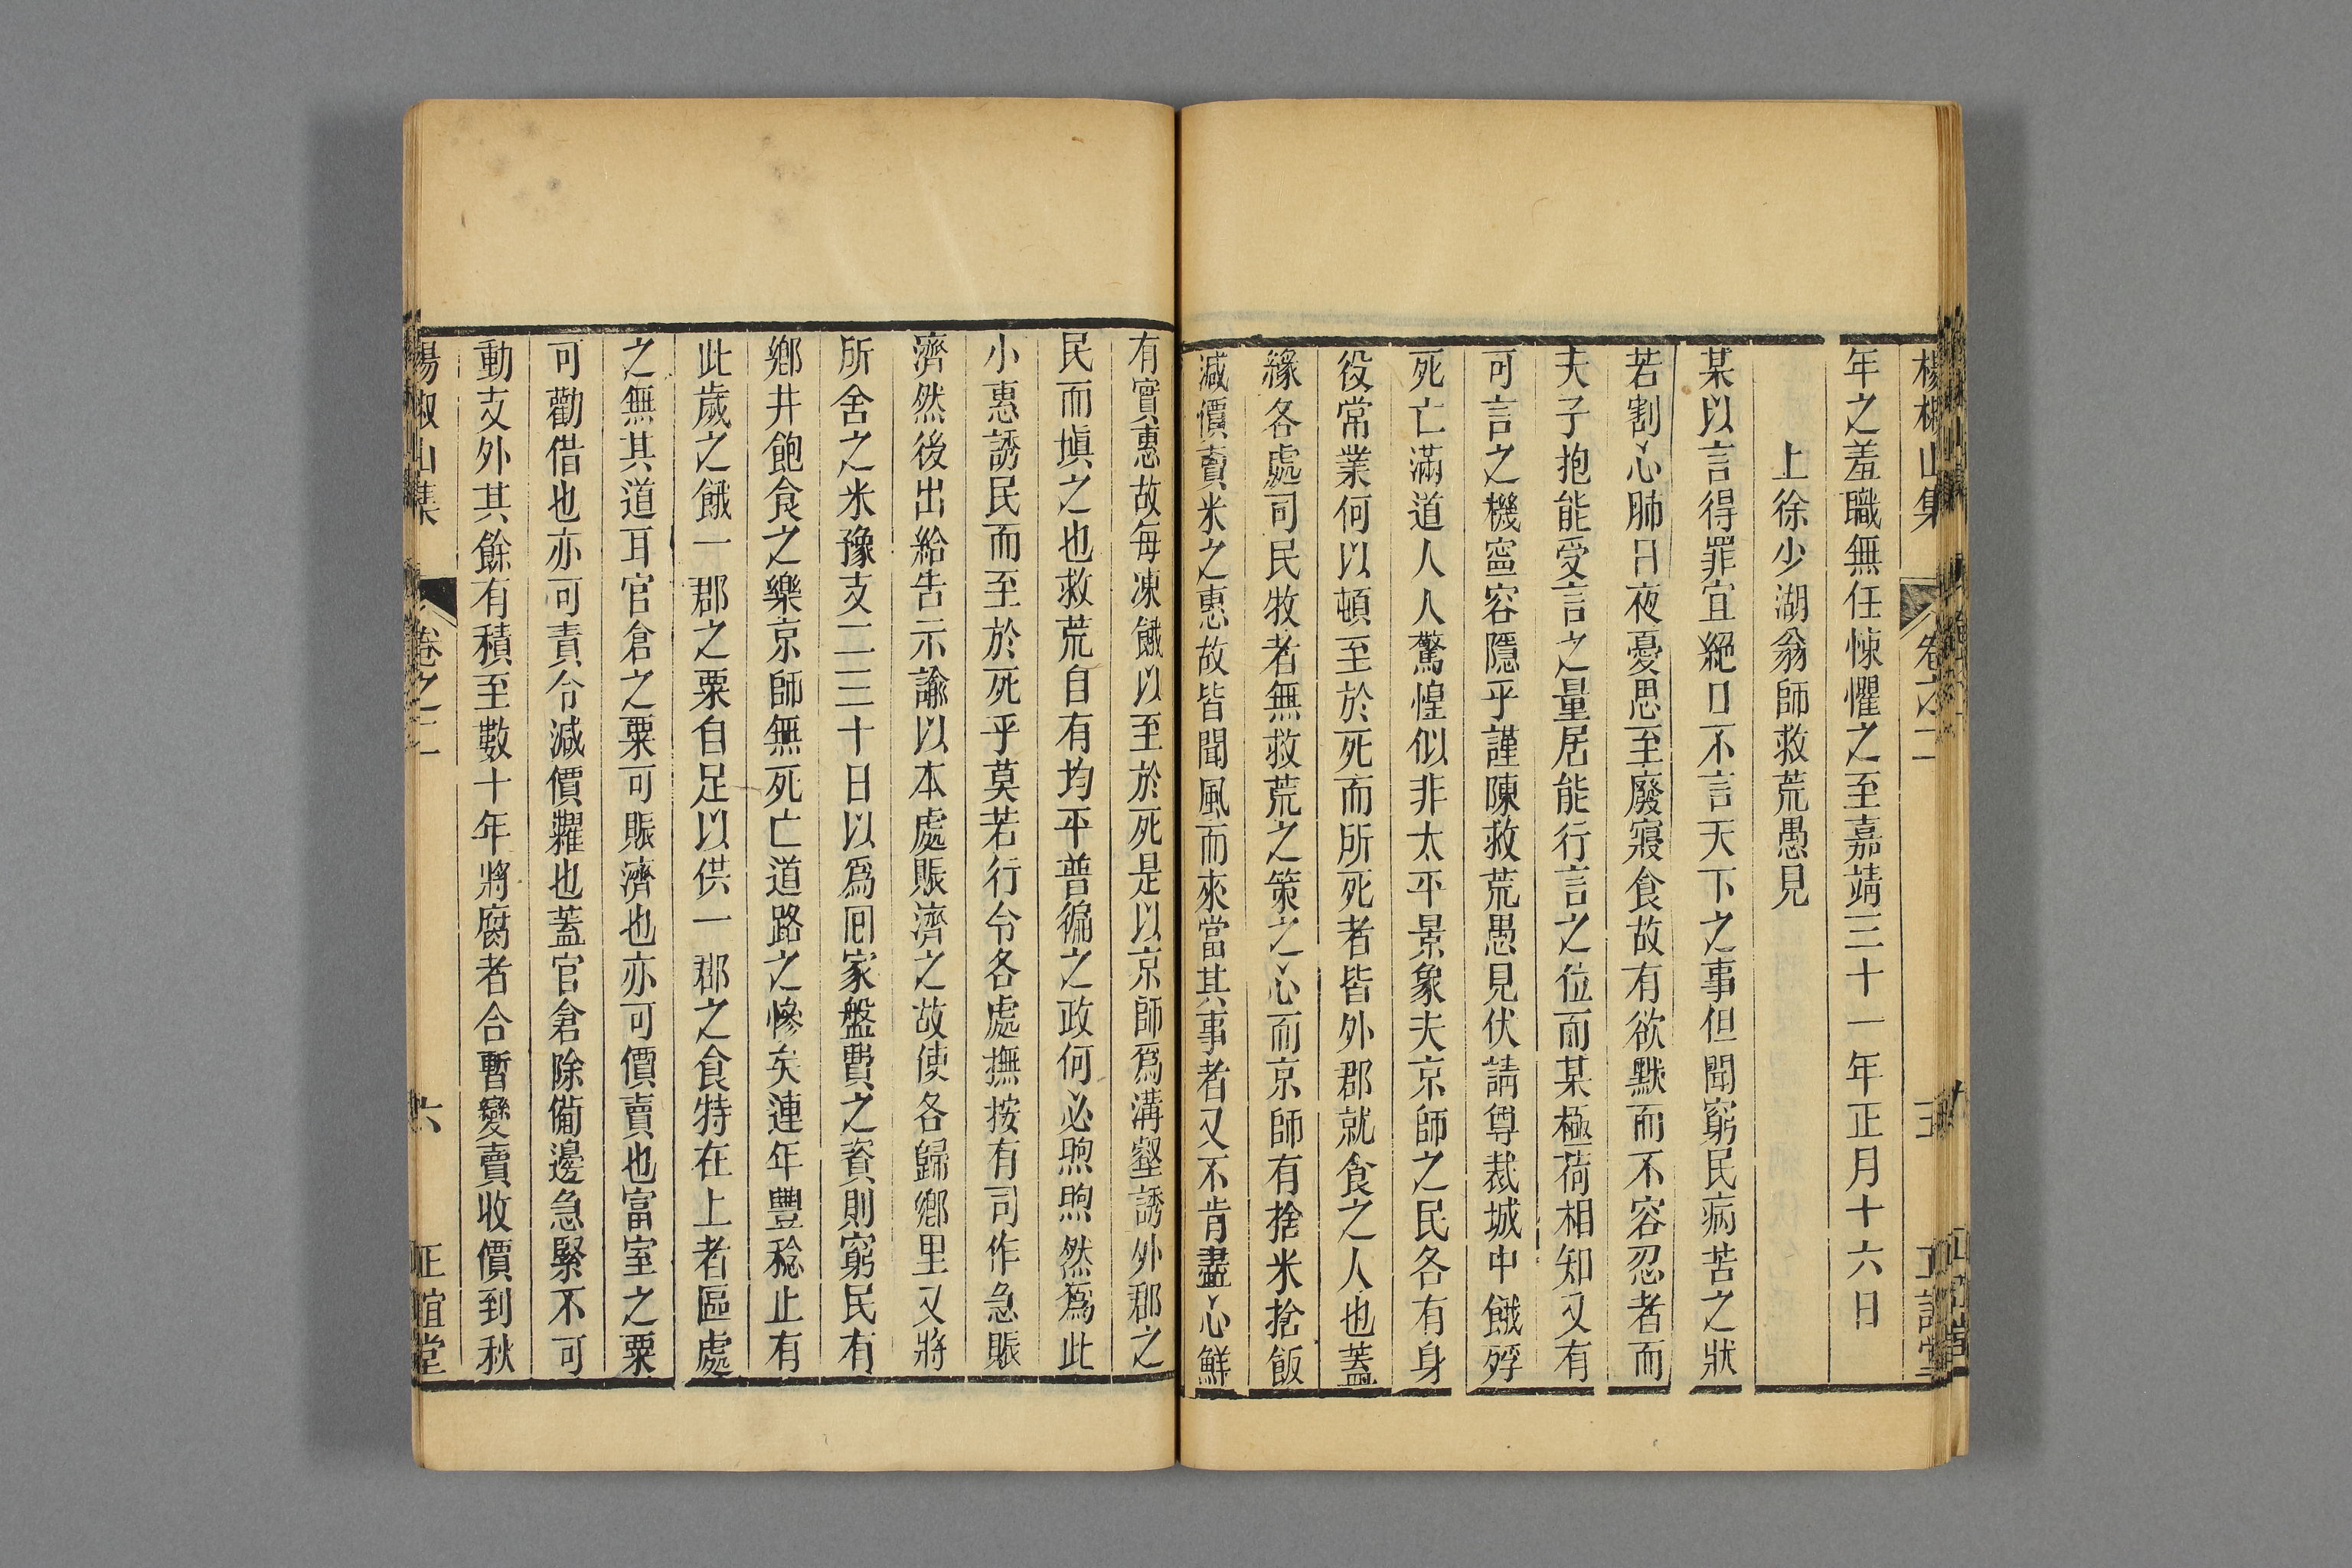 楊椒山集 卷之二 五 正誼堂
年之羞職無任悚懼之至嘉靖三十一年正月十六日
上徐少湖翁師救荒愚見
某以言得罪宜絕口不言天下之事但聞窮民病苦之狀
若割心肺日夜憂思至廢寢食故有欲默而不容忍者而
夫子抱能受言之量居能行言之位而某極荷相知又有
可言之機寧容隱乎謹陳救荒愚見伏請尊裁城中餓殍
死亡滿道人人驚惶似非太平景象夫京師之民各有身
役常業何以頓至於死而所死者皆外郡就食之人也蓋
緣各處司民牧者無救荒之策之心而京師有捨米捨飯
減價賣米之惠故皆聞風而來當其事者又不肯盡心鮮
有實惠故每凍餓以至於死是以京師爲溝壑誘外郡之
民而塡之也救荒自有均平普徧之政何必煦煦然爲此
小惠誘民而至於死乎莫若行令各處撫按有司作急賑
濟然後出給告示諭以本處賑濟之故使各歸鄉里又將
所舍之米豫支二三十日以爲囘家盤費之資則窮民有
鄉井飽食之樂京師無死亡道路之慘矣連年豐稔止有
此歲之餓一郡之粟自足以供一郡之食特在上者區處
之無其道耳官倉之粟可賑濟也亦可價賣也富室之粟
可勸借也亦可責令減價糶也蓋官倉除備邊急緊不可
動支外其餘有積至數十年將腐者合暫變賣收價到秋
楊椒山集 卷之二 六 正誼堂